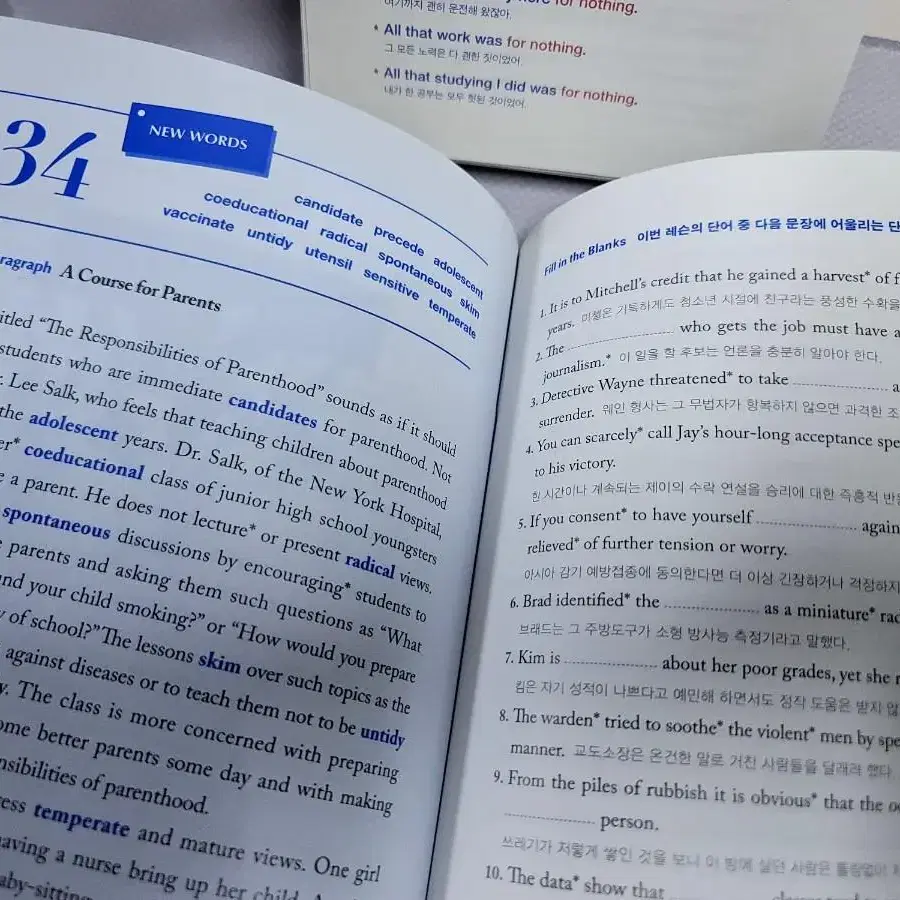 for nothing.
여기까지 괜히 운전해 왔잖아.
* All that work was for nothing.
그 모든 노력은 다 괜한 짓이었어.
* All that studying I did was for nothing.
내가 한 공부는 모두 헛된 것이었어.
34
NEW WORDS
candidate precede adolescent
coeducational radical spontaneous skim
vaccinate untidy utensil sensitive temperate
A Course for Parents
"The Responsibilities of Parenthood" sounds as if it should
students who are immediate candidates for parenthood. Not
Lee Salk, who feels that teaching children about parenthood
the adolescent years. Dr. Salk, of the New York Hospital,
coeducational class of junior high school youngsters
a parent. He does not lecture* or present radical views.
spontaneous discussions by encouraging* students to
parents and asking them such questions as "What
your child smoking?" or "How would you prepare
of school?" The lessons skim over such topics as the
against diseases or to teach them not to be untidy
The class is more concerned with preparing
better parents some day and with making
of parenthood.
temperate and mature views. One girl
having a nurse bring up her child.
Fill in the Blanks 이번 레슨의 단어 중 다음 문장에 어울리는
1. It is to Mitchell's credit that he gained a harvest* of
years. 미첼은 기특하게도 청소년 시절에 친구라는 풍성한 수확을
2. The ............ who gets the job must have a
journalism.* 이 일을 할 후보는 언론을 충분히 알아야 한다.
3. Detective Wayne threatened* to take ............
surrender. 웨인 형사는 그 무법자가 항복하지 않으면 과격한
4. You can scarcely* call Jay's hour-long acceptance
to his victory.
한 시간이나 계속되는 제이의 수락 연설을 승리에 대한 즉흥적
5. If you consent* to have yourself ............
relieved* of further tension or worry.
아시아 감기 예방접종에 동의한다면 더 이상 긴장하거나
6. Brad identified* the ............ as a miniature*
브래드는 그 주방도구가 소형 방사능 측정기라고 말했다.
7. Kim is ............ about her poor grades, yet she
킴은 자기 성적이 나쁘다고 예민해 하면서도 정작 도움은 받지
8. The warden* tried to soothe* the violent* men by
manner. 교도소장은 온건한 말로 거친 사람들을 달래려 했다.
9. From the piles of rubbish it is obvious* that the
............ person.
쓰레기가 저렇게 쌓인 것을 보니 이 방에 살던 사람은 틀림없이
10. The data* show that ............